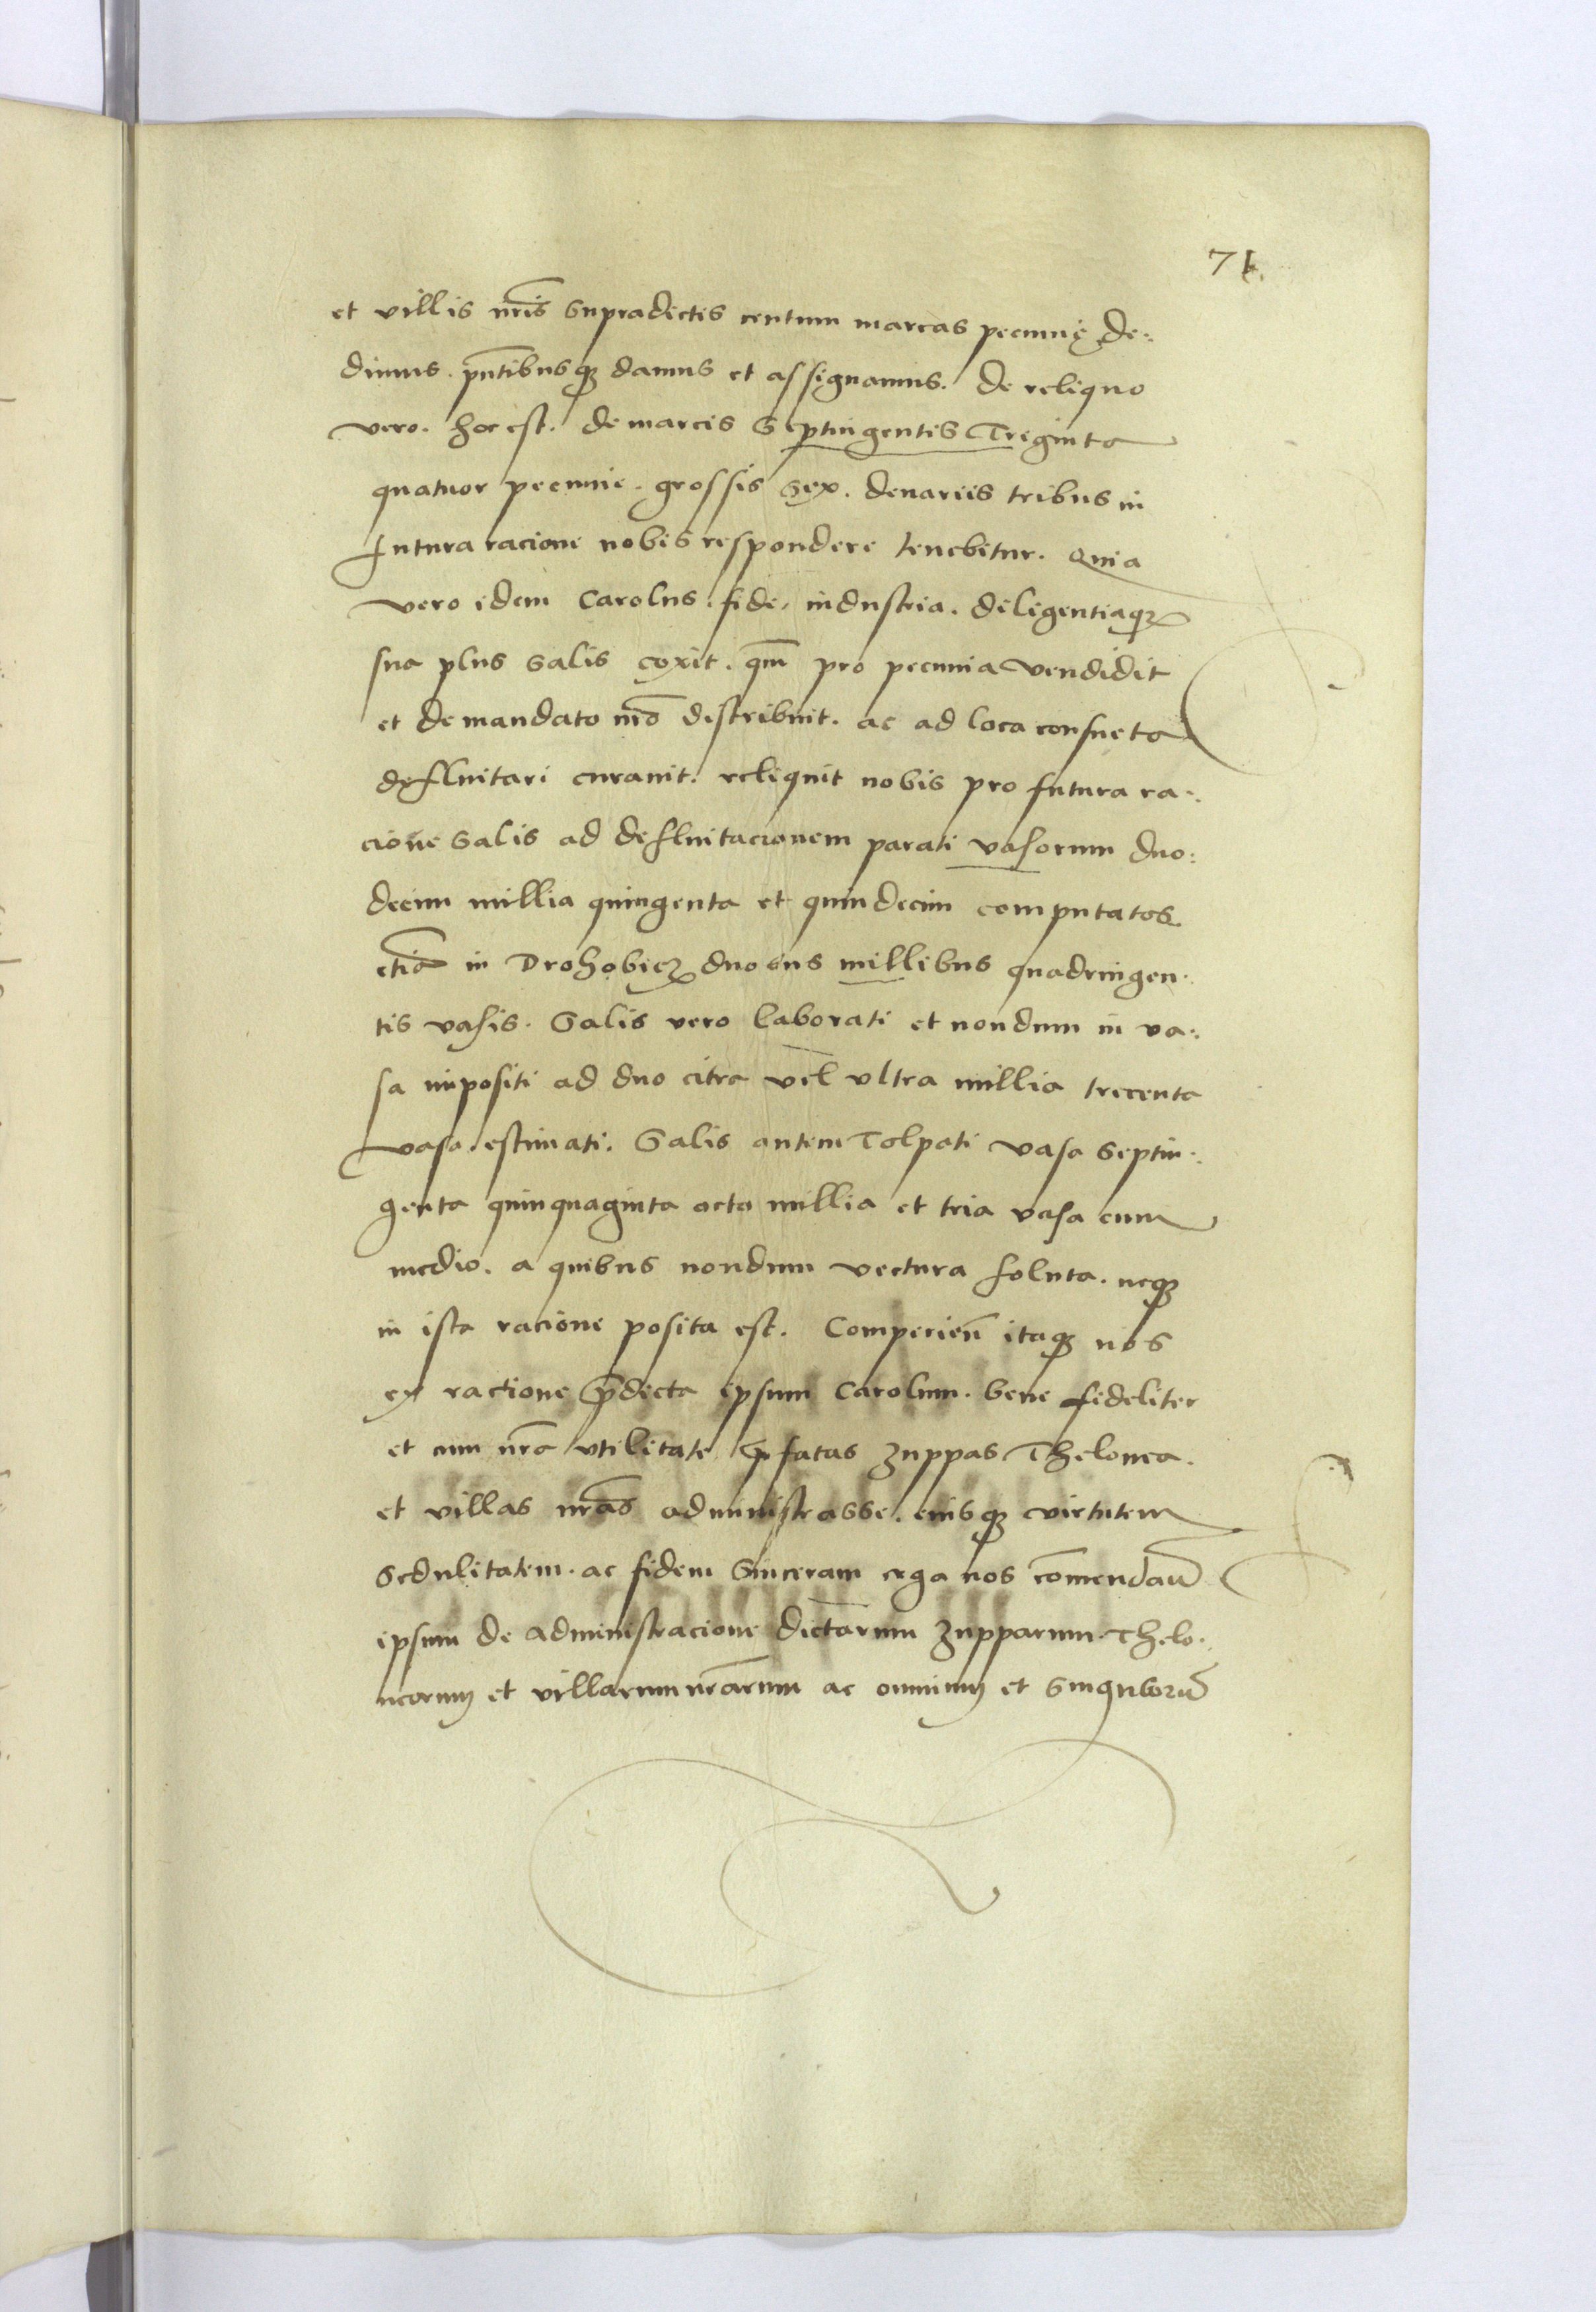 71.
et villis nr̃is supradictis centum marcas pecunię de:
dimus. pñtibusqꝫ damus et assignamus. De reliquo
vero. hoc est. de marcis Septingentis Triginta
quatuor pecunie. grossis sex. denariis tribus in
futura racione nobis respondere tenebitur. Quia
vero idem Carolus. fide, industria. diligentiaqꝫ
sua plus salis coxit. qm̃ pro pecunia vendidit
et de mandato nr̃o distribuit. ac ad loca consueta
defluitari curauit. reliquit nobis pro futura ra:
cione salis ad defluitacionem parati vasorum duo:
decim millia quingenta et quindecim computatos
etiã in Drohobicz duobus millibus quadringen:
tis vasis. Salis vero laborati et nondum in va:
sa impositi ad duo citra vel vltra millia trecenta
vasa. estimati. Salis autem Tolpati vasa septin:
genta quinquaginta octo millia et tria vasa cum
medio. a quibus nondum vectura soluta. neqꝫ
in ista racione posita est. Comperieñ itaqꝫ nos
ex ractione p̃dicta ipsum Carolum. bene fideliter
et cum nr̃a vtilitate p̃fatas zuppas Thelonea.
et villas nr̃as administrasse. eiusqꝫ virtutem
sedulitatem. ac fidem sinceram erga nos com̃endañ
ipsum de administracione dictarum zupparum. Thelo:
neorum et villarum nr̃arum ac omnium et singulorũ